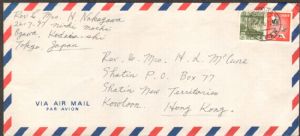 Rev & Mrs. H. Nakazawa
Ogawa, Kodaira-shi
Tokyo Japan
Rev. & Mrs H. L. McClure
Shatin P.O. Box 77
Shatin New Territories
Kowloon, Hong Kong.
VIA AIR MAIL
PAR AVION